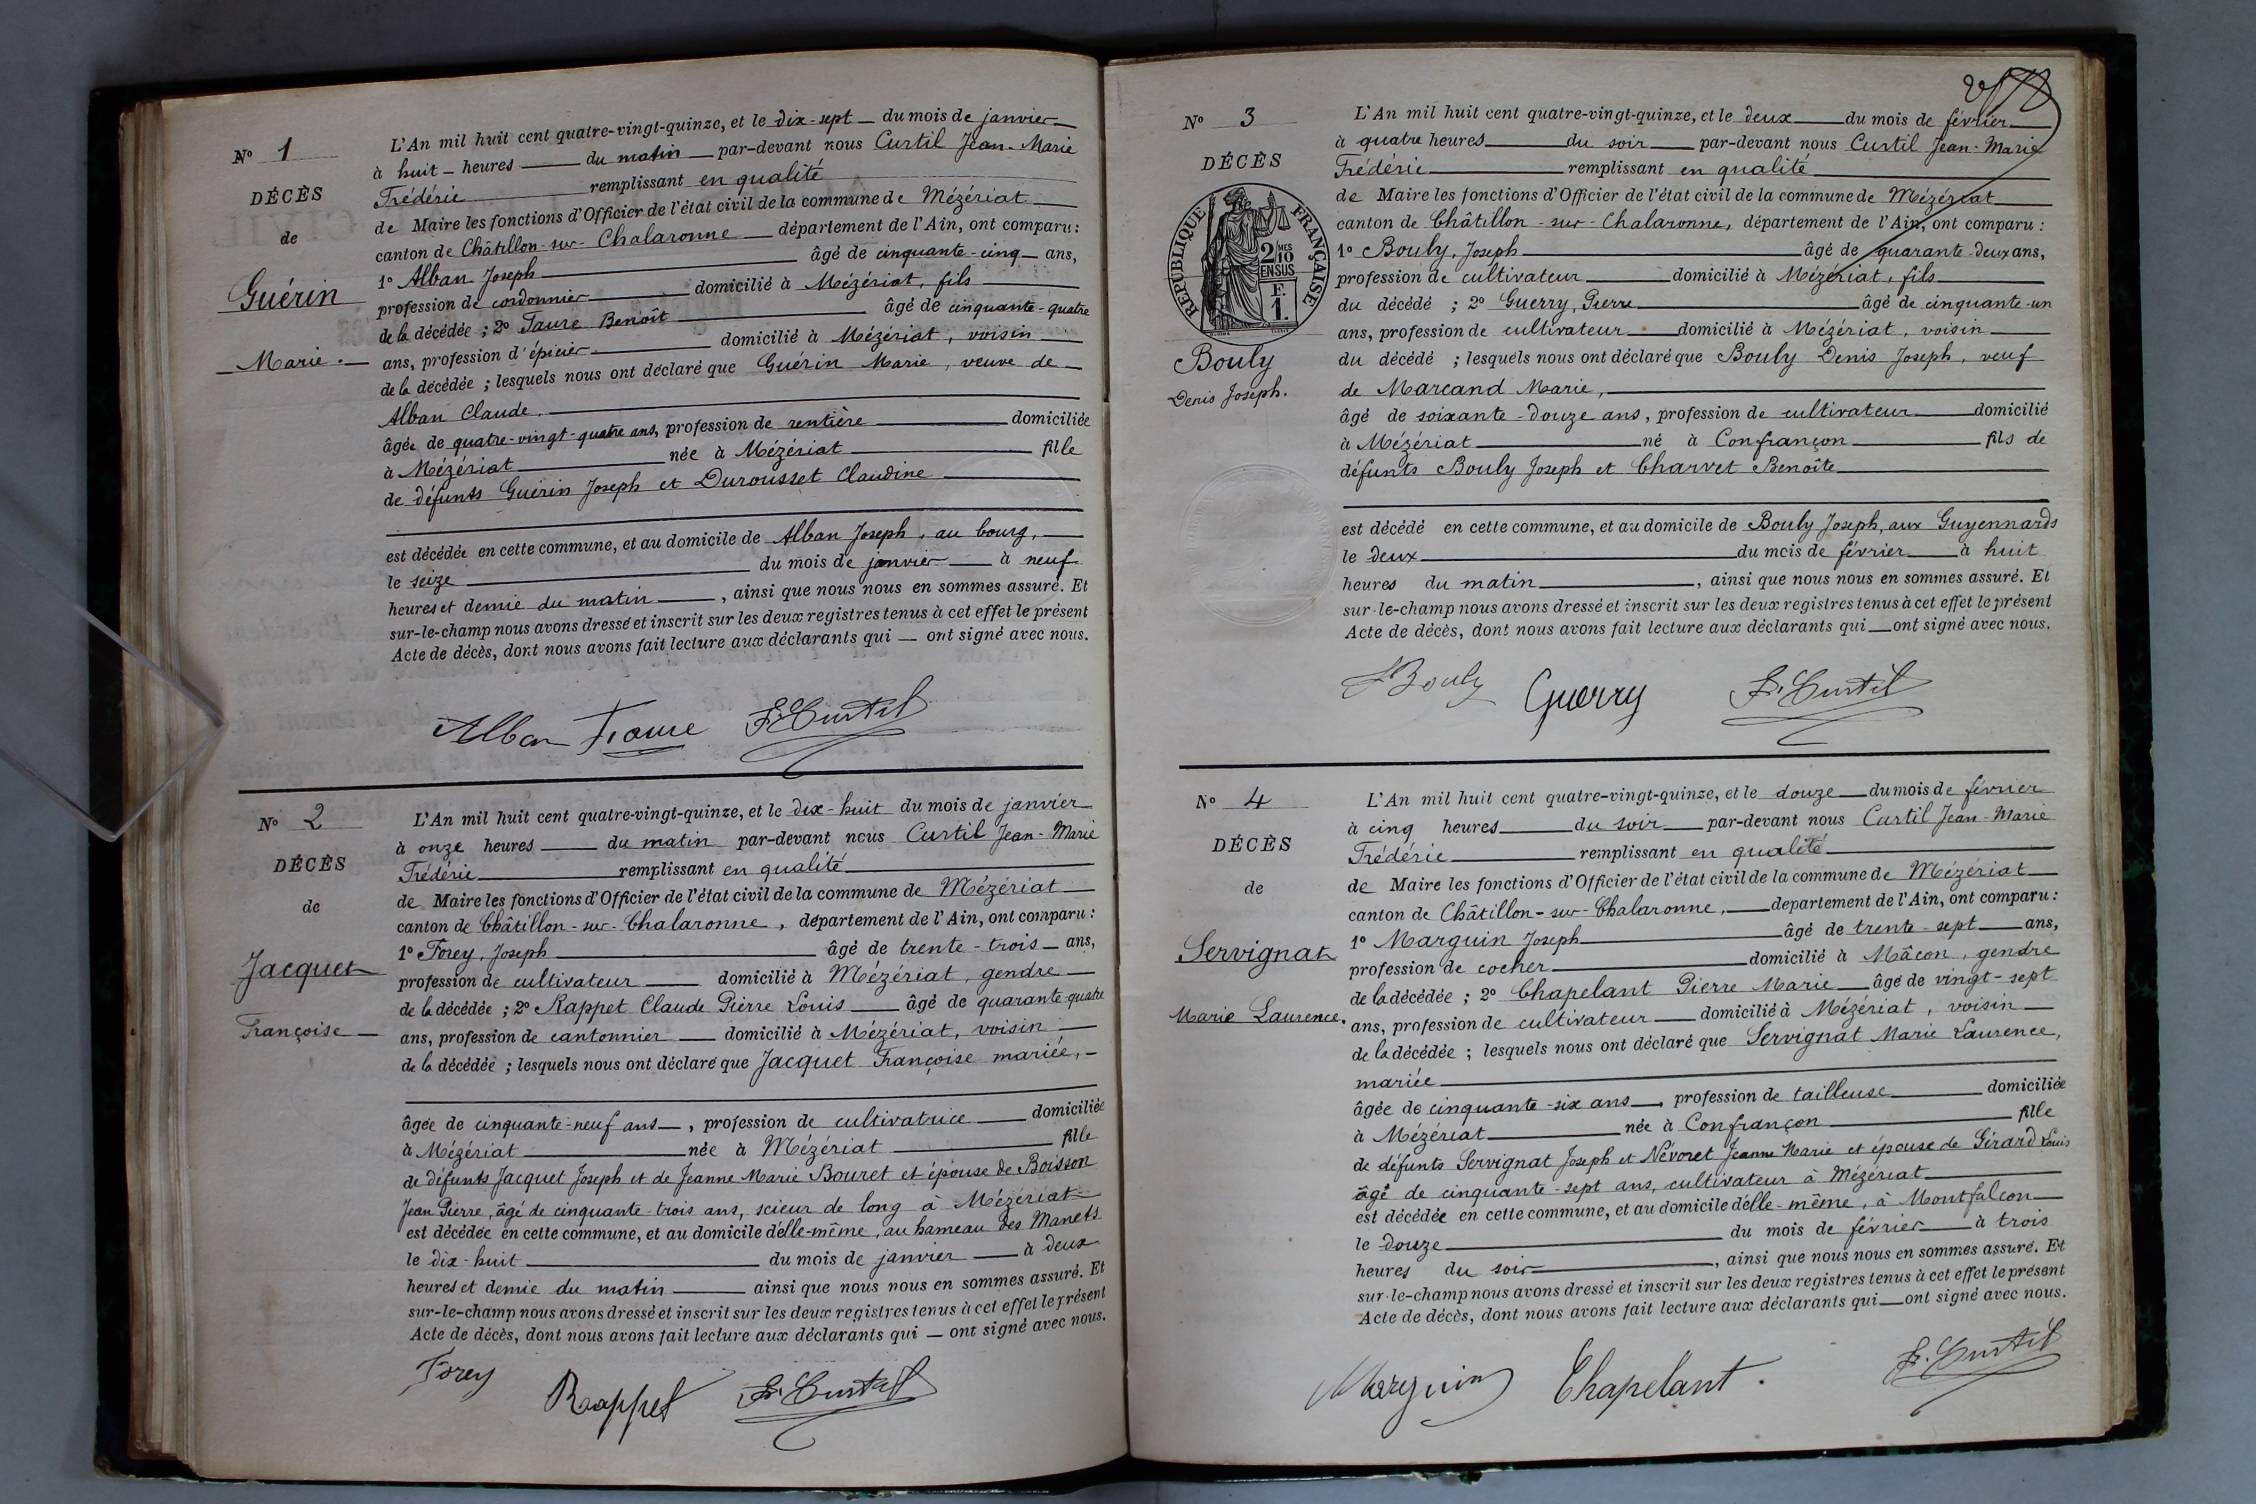 N° 1
DÉCÈS
de
Guérin
Marie.
L'An mil huit cent quatre-vingt-quinze, et le dix-sept du mois de janvier
à huit heures du matin par-devant nous Curtil Jean-Marie
Frédéric remplissant en qualité
de Maire les fonctions d'Officier de l'état civil de la commune de Mézériat
canton de Châtillon-sur-Chalaronne département de l'Ain, ont comparu :
1° Alban Joseph âgé de cinquante-cinq ans,
profession de cordonnier domicilié à Mézériat, fils
de la décédée ; 2° Faure Benoît âgé de cinquante-quatre
ans, profession d'épicier domicilié à Mézériat, voisin
de la décédée ; lesquels nous ont déclaré que Guérin Marie, veuve de
Alban Claude.
âgée de quatre-vingt-quatre ans, profession de rentière domiciliée
à Mézériat née à Mézériat fille
de défunts Guérin Joseph et Durousset Claudine
est décédée en cette commune, et au domicile de Alban Joseph, au bourg,
le seize du mois de janvier à neuf
heures et demie du matin, ainsi que nous nous en sommes assuré. Et
sur-le-champ nous avons dressé et inscrit sur les deux registres tenus à cet effet le présent
Acte de décès, dont nous avons fait lecture aux déclarants qui ont signé avec nous.
Alban Faure Fr. Curtil
N° 2
DÉCÈS
de
Jacquet
Françoise
L'An mil huit cent quatre-vingt-quinze, et le dix-huit du mois de janvier
à onze heures du matin par-devant nous Curtil Jean-Marie
Frédéric remplissant en qualité
de Maire les fonctions d'Officier de l'état civil de la commune de Mézériat
canton de Châtillon-sur-Chalaronne, département de l'Ain, ont comparu :
1° Forey, Joseph âgé de trente-trois ans,
profession de cultivateur domicilié à Mézériat, gendre
de la décédée ; 2° Rappet Claude Pierre Louis âgé de quarante-quatre
ans, profession de cantonnier domicilié à Mézériat, voisin
de la décédée ; lesquels nous ont déclaré que Jacquet Françoise mariée,
âgée de cinquante-neuf ans, profession de cultivatrice domiciliée
à Mézériat née à Mézériat fille
de défunts Jacquet Joseph et de Jeanne Marie Bouret et épouse de Boisson
Jean Pierre, âgé de cinquante-trois ans, scieur de long à Mézériat
est décédée en cette commune, et au domicile d'elle-même, au hameau des Manets
le dix-huit du mois de janvier à deux
heures et demie du matin ainsi que nous nous en sommes assuré. Et
sur-le-champ nous avons dressé et inscrit sur les deux registres tenus à cet effet le présent
Acte de décès, dont nous avons fait lecture aux déclarants qui ont signé avec nous.
Forey Rappet Fr. Curtil
N° 3
DÉCÈS
RÉPUBLIQUE FRANÇAISE
2 MES
10
EN SUS
F.
1.
Bouly
Denis Joseph.
L'An mil huit cent quatre-vingt-quinze, et le deux du mois de février
à quatre heures du soir par-devant nous Curtil Jean-Marie
Frédéric remplissant en qualité
de Maire les fonctions d'Officier de l'état civil de la commune de Mézériat
canton de Châtillon-sur-Chalaronne, département de l'Ain, ont comparu :
1° Bouly, Joseph âgé de quarante-deux ans,
profession de cultivateur domicilié à Mézériat, fils
du décédé ; 2° Guerry, Pierre âgé de cinquante-un
ans, profession de cultivateur domicilié à Mézériat, voisin
du décédé ; lesquels nous ont déclaré que Bouly Denis Joseph, veuf
de Marcand Marie,
âgé de soixante-douze ans, profession de cultivateur domicilié
à Mézériat né à Confrançon fils de
défunts Bouly Joseph et Charvet Benoîte
est décédé en cette commune, et au domicile de Bouly Joseph, aux Guyennards
le deux du mois de février à huit
heures du matin, ainsi que nous nous en sommes assuré. Et
sur-le-champ nous avons dressé et inscrit sur les deux registres tenus à cet effet le présent
Acte de décès, dont nous avons fait lecture aux déclarants qui ont signé avec nous.
Bouly Guerry Fr. Curtil
N° 4
DÉCÈS
de
Servignat
Marie Laurence.
L'An mil huit cent quatre-vingt-quinze, et le douze du mois de février
à cinq heures du soir par-devant nous Curtil Jean-Marie
Frédéric remplissant en qualité
de Maire les fonctions d'Officier de l'état civil de la commune de Mézériat
canton de Châtillon-sur-Chalaronne, département de l'Ain, ont comparu :
1° Marguin Joseph âgé de trente-sept ans,
profession de cocher domicilié à Mâcon, gendre
de la décédée ; 2° Chapelant Pierre Marie âgé de vingt-sept
ans, profession de cultivateur domicilié à Mézériat, voisin
de la décédée ; lesquels nous ont déclaré que Servignat Marie Laurence,
mariée
âgée de cinquante-six ans, profession de tailleuse domiciliée
à Mézériat née à Confrançon fille
de défunts Servignat Joseph et Névoret Jeanne Marie et épouse de Gérard Louis
âgé de cinquante-sept ans, cultivateur à Mézériat
est décédée en cette commune, et au domicile d'elle-même, à Montfalcon
le douze du mois de février à trois
heures du soir, ainsi que nous nous en sommes assuré. Et
sur-le-champ nous avons dressé et inscrit sur les deux registres tenus à cet effet le présent
Acte de décès, dont nous avons fait lecture aux déclarants qui ont signé avec nous.
Marguin Chapelant. Fr. Curtil